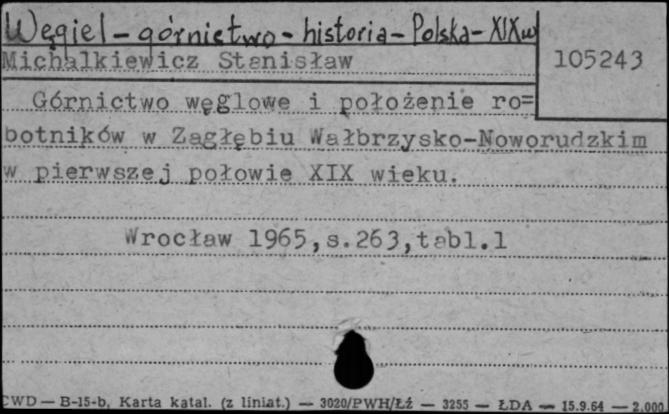 Węgiel - górnictwo - historia - Polska - XIXw
Michalkiewicz Stanisław
105243
Górnictwo węglowe i położenie ro=
botników w Zagłębiu Wałbrzysko-Noworudzkim
w pierwszej połowie XIX wieku.
Wrocław 1965,s.263,tabl.1
CWD — B-15-b, Karta katal. (z liniat.) — 3020/PWH/Łź — 3255 — ŁDA — 15.9.64 — 2.000